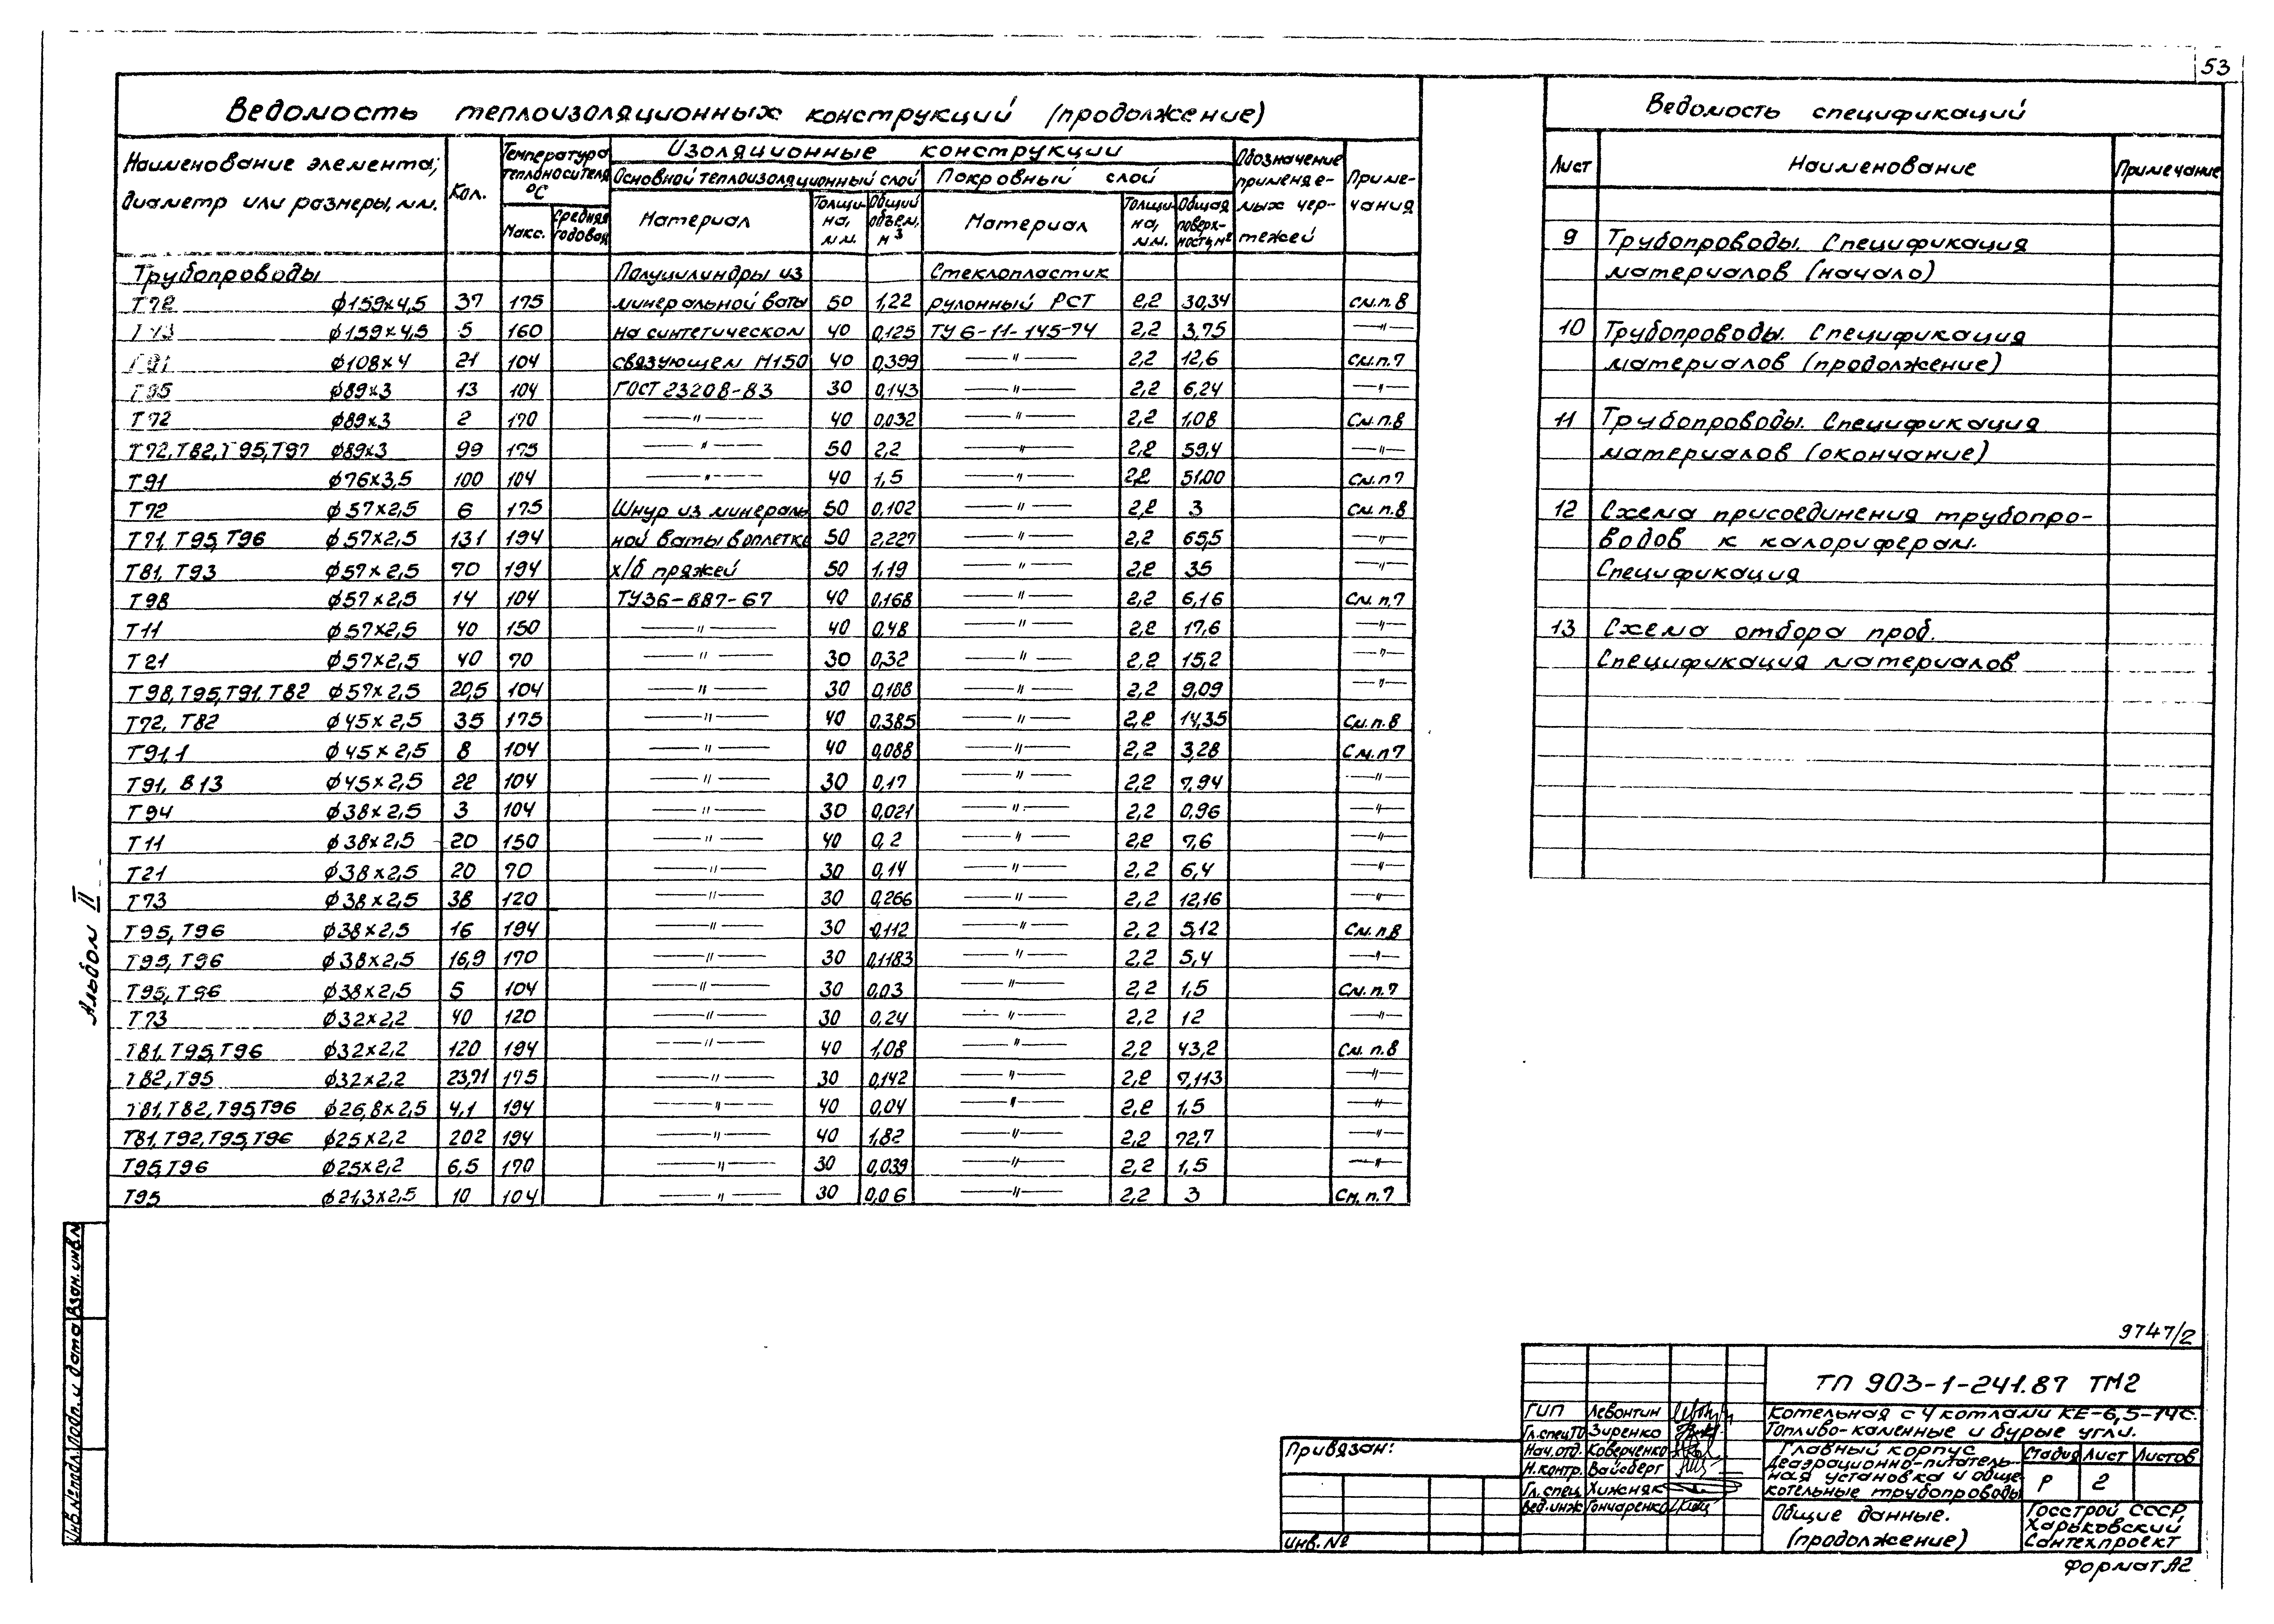 53
Ведомость теплоизоляционных конструкций (продолжение)
Наименование элемента; диаметр или размеры, мм. Кол. Температура теплоносителя °С Изоляционные конструкции Обозначение применяе-мых чер-тежей Приме-чания
Основной теплоизоляционный слой Покровный слой
Макс. Средняя годовая Материал Толщи-на, мм. Общий объем, м³ Материал Толщи-на, мм. Общая поверх-ность, м²
Трубопроводы Полуцилиндры из Стеклопластик
Т72 ф159х4,5 37 175 минеральной ваты 50 1,22 рулонный РСТ 2,2 30,34 См.п.8
Т73 ф159х4,5 5 160 на синтетическом 40 0,125 ТУ6-11-145-74 2,2 3,75 —"—
Т91 ф108х4 21 104 связующем М150 40 0,399 —"— 2,2 12,6 См.п.7
Т95 ф89х3 13 104 ГОСТ 23208-83 30 0,143 —"— 2,2 6,24 —"—
Т72 ф89х3 2 170 —"— 40 0,032 —"— 2,2 1,08 См.п.8
Т72, Т82, Т95, Т97 ф89х3 99 175 —"— 50 2,2 —"— 2,2 59,4 —"—
Т91 ф76х3,5 100 104 —"— 40 1,5 —"— 2,2 51,00 См.п7
Т72 ф57х2,5 6 175 Шнур из минераль 50 0,102 —"— 2,2 3 См.п.8
Т71, Т95, Т96 ф57х2,5 131 194 ной ваты воплетке 50 2,227 —"— 2,2 65,5 —"—
Т81, Т93 ф57х2,5 70 194 х/б пряжей 50 1,19 —"— 2,2 35 —"—
Т98 ф57х2,5 14 104 ТУ36-887-67 40 0,168 —"— 2,2 6,16 См.п.7
Т11 ф57х2,5 40 150 —"— 40 0,48 —"— 2,2 17,6 —"—
Т21 ф57х2,5 40 70 —"— 30 0,32 —"— 2,2 15,2 —"—
Т98, Т95, Т91, Т82 ф57х2,5 20,5 104 —"— 30 0,188 —"— 2,2 9,09 —"—
Т72, Т82 ф45х2,5 35 175 —"— 40 0,385 —"— 2,2 14,35 См.п.8
Т91,1 ф45х2,5 8 104 —"— 40 0,088 —"— 2,2 3,28 См.п7
Т91, В13 ф45х2,5 22 104 —"— 30 0,17 —"— 2,2 7,94 —"—
Т94 ф38х2,5 3 104 —"— 30 0,021 —"— 2,2 0,96 —"—
Т11 ф38х2,5 20 150 —"— 40 0,2 —"— 2,2 7,6 —"—
Т21 ф38х2,5 20 70 —"— 30 0,14 —"— 2,2 6,4 —"—
Т73 ф38х2,5 38 120 —"— 30 0,266 —"— 2,2 12,16 —"—
Т95, Т96 ф38х2,5 16 194 —"— 30 0,112 —"— 2,2 5,12 См.п.8
Т95, Т96 ф38х2,5 16,9 170 —"— 30 0,1183 —"— 2,2 5,4 —"—
Т95, Т96 ф38х2,5 5 104 —"— 30 0,03 —"— 2,2 1,5 См.п.7
Т73 ф32х2,2 40 120 —"— 30 0,24 —"— 2,2 12 —"—
Т81, Т95, Т96 ф32х2,2 120 194 —"— 40 1,08 —"— 2,2 43,2 См.п.8
Т82, Т95 ф32х2,2 23,71 175 —"— 30 0,142 —"— 2,2 7,113 —"—
Т81, Т82, Т95, Т96 ф26,8х2,5 4,1 194 —"— 40 0,04 —"— 2,2 1,5 —"—
Т81, Т92, Т95, Т96 ф25х2,2 202 194 —"— 40 1,82 —"— 2,2 72,7 —"—
Т95, Т96 ф25х2,2 6,5 170 —"— 30 0,039 —"— 2,2 1,5 —"—
Т95 ф21,3х2,5 10 104 —"— 30 0,06 —"— 2,2 3 См.п.7
Ведомость спецификаций
Лист Наименование Примечание
9 Трубопроводы. Спецификация
материалов (начало)
10 Трубопроводы. Спецификация
материалов (продолжение)
11 Трубопроводы. Спецификация
материалов (окончание)
12 Схема присоединения трубопро-
водов к калориферам.
Спецификация
13 Схема отбора проб.
Спецификация материалов
Альбом II
Взам. инв.№
Подп. и дата
Инв.№подл.
9747/2
ТП 903-1-241.87 ТМ2
ГИП Левонтин
Гл.спецТО Зиренко
Нач.отд. Коверченко
Н.контр. Вайсберг
Гл.спец. Хижняк
Вед.инж Гончаренко
Котельная с 4 котлами КЕ-6,5-14С.
Топливо-каменные и бурые угли.
Главный корпус
Деаэрационно-питатель-
ная установка и обще
котельные трубопроводы
Стадия Лист Листов
Р 2
Общие данные.
(продолжение)
Госстрой СССР,
Харьковский
Сантехпроект
Привязан:
Инв.№
Формат А2